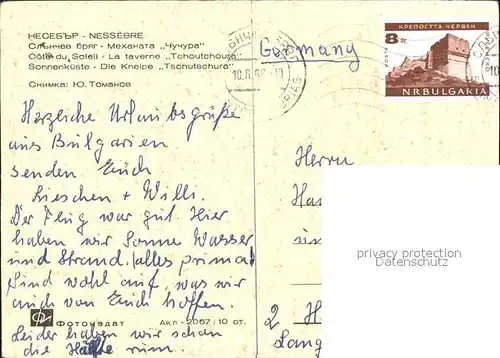 НЕСЕБЪР - NESSÈBRE
Слънчев бряг - Механата „Чучура"
Côte du Soleil - La taverne „Tchoutchoura"
Sonnenküste - Die Kneipe „Tschutschura"
Снимка: Ю. Томаков
Germany
КРЕПОСТТА ЧЕРВЕН
8 ст.
ПОЩА
N.R.BULGARIA
10.6.68
Herzliche Urlaubsgrüße
aus Bulgarien
senden Euch
Lieschen + Willi.
Der Flug war gut. Hier
haben wir Sonne Wasser
und Strand. (alles prima)
Sind wohl auf, was wir
auch von Euch hoffen.
Leider haben wir schon
die Hälfte rum.
Herrn
Ha
un
2 H
Lang
privacy protection
Datenschutz
Фотоиздат Акл - 2067 / 10 ст.